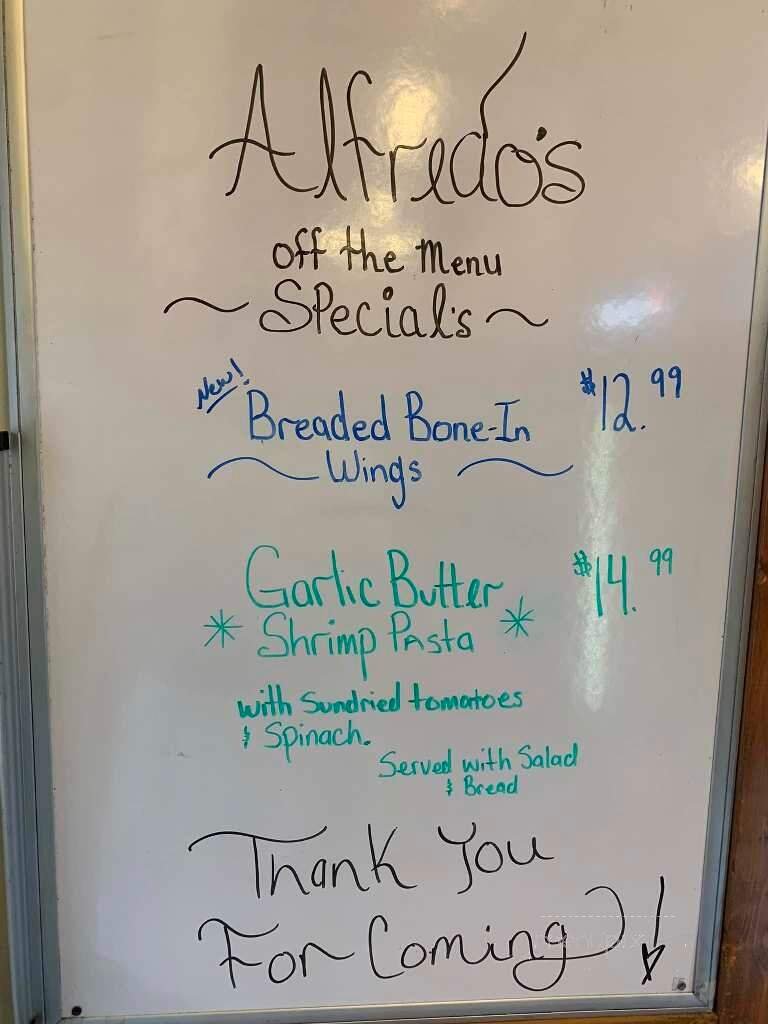 Alfredo's
off the Menu
~ Special's ~
New!
Breaded Bone-In $12.99
~ Wings ~
Garlic Butter $14.99
* Shrimp Pasta *
with Sundried tomatoes
& Spinach.
Served with Salad
& Bread
Thank You
For Coming!